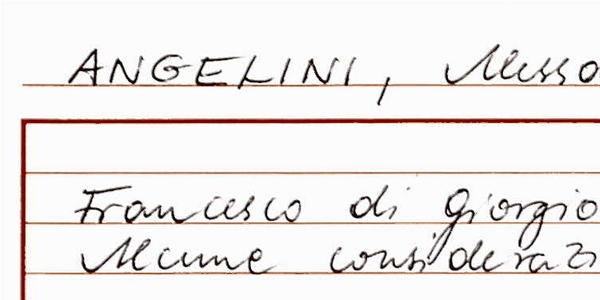 ANGELINI, Alessa
Francesco di Giorgio
Alcune considerazi